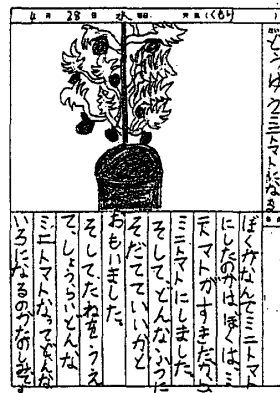 4月28日水曜 天気(くもり
ミニトマトになる
ぼくがなんでミニトマト
にしたのかは、ぼくは、ミ
ニトマトがすきだから
ミニトマトにしました。
そして、どんなふうに
そだてていいかと
おもいました。
そしてたねをうえ
て、しょうらいどんな
ミニトマトなってどんな
いろになるのかたのしみです